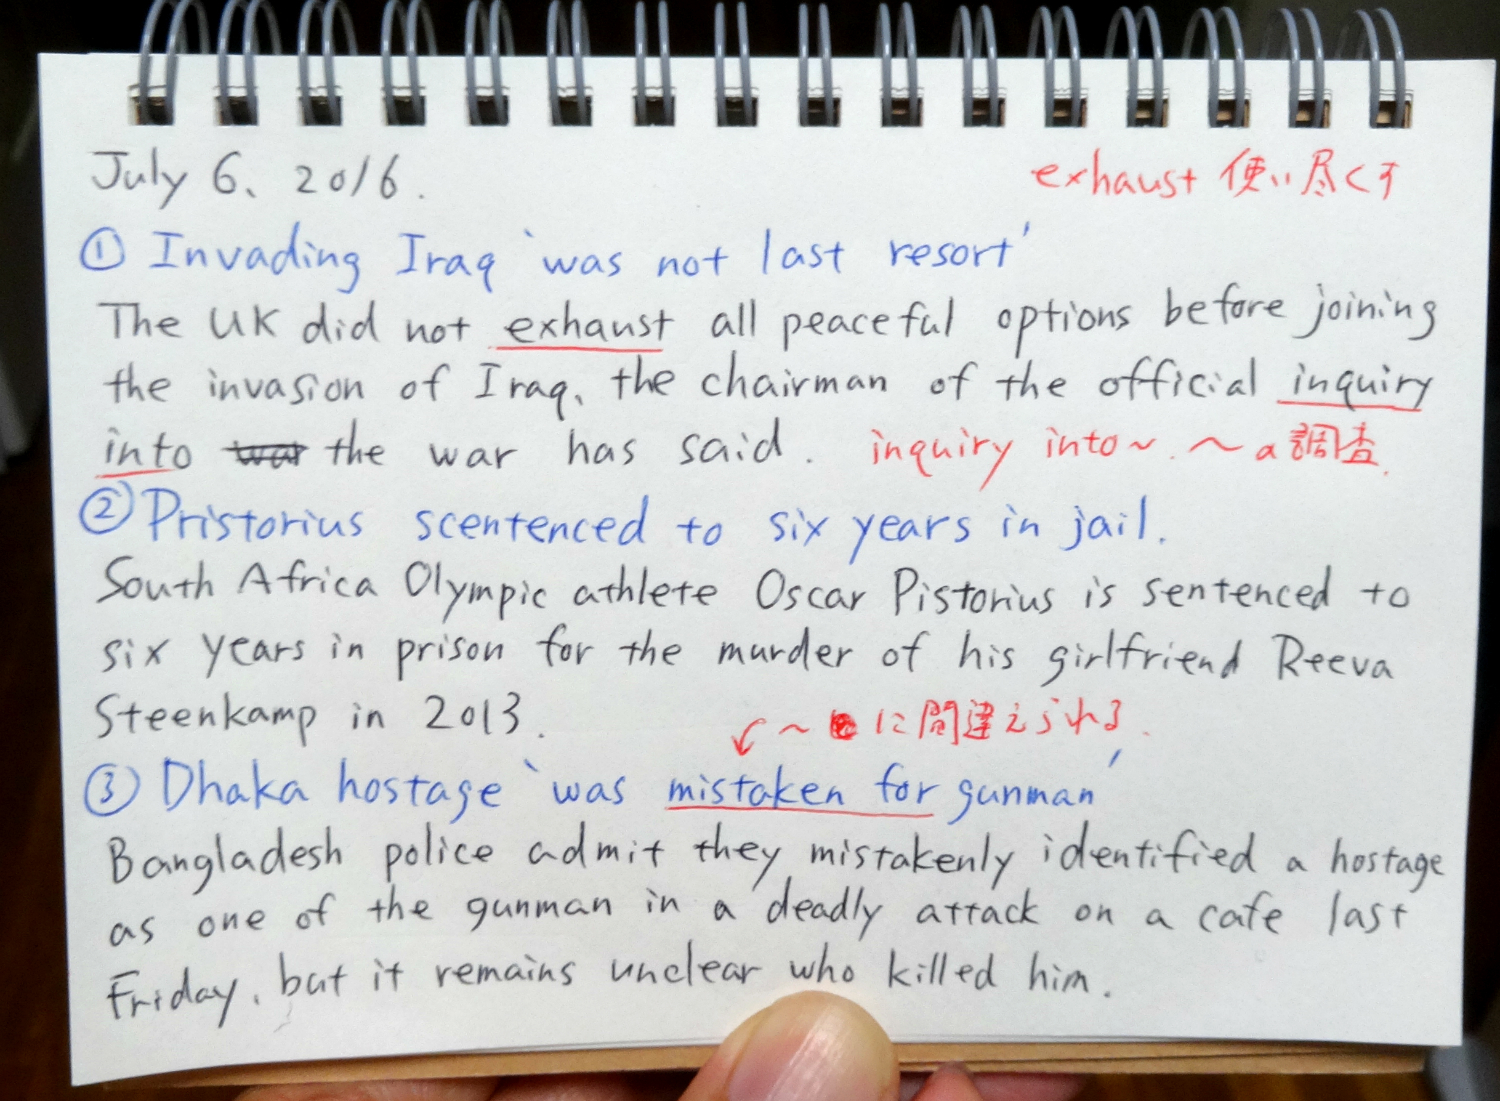 July 6、2016.
exhaust 使い尽くす
① Invading Iraq `was not last resort'
The UK did not exhaust all peaceful options before joining
the invasion of Iraq, the chairman of the official inquiry
into war the war has said. inquiry into~. ~の調査.
② Pristorius scentenced to six years in jail.
South Africa Olympic athlete Oscar Pistorius is sentenced to
six years in prison for the murder of his girlfriend Reeva
Steenkamp in 2013.
↙ ~ に間違えられる.
③ Dhaka hostage `was mistaken for gunman'
Bangladesh police admit they mistakenly identified a hostage
as one of the gunman in a deadly attack on a cafe last
Friday, but it remains unclear who killed him.